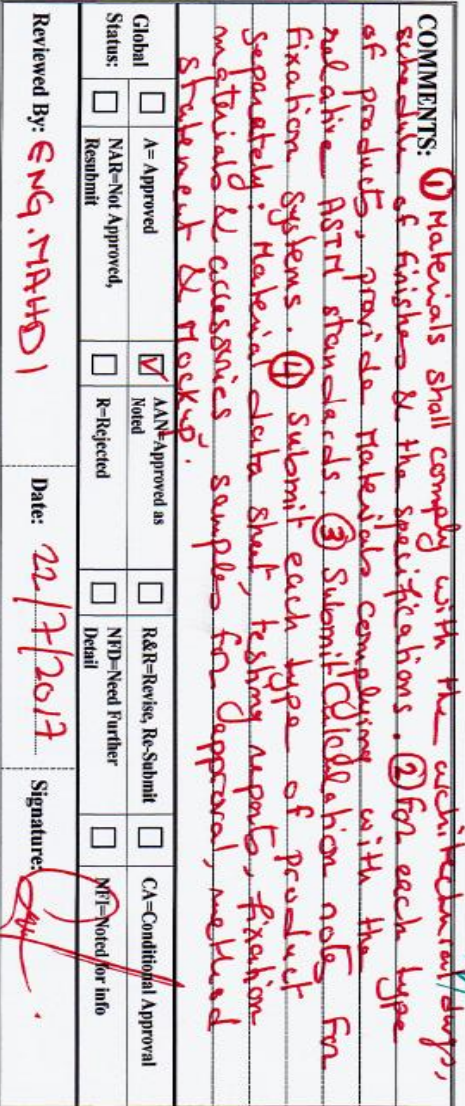 COMMENTS: ① Materials shall comply with the architectural dwgs,
schedule of finishes & the specifications. ② For each type
of products, provide Materials complying with the
relative ASTM standards. ③ Submit Calculation note for
fixation systems. ④ Submit each type of product
separately: Material data sheet, testing reports, fixation
materials & accessories samples for approval, method
statement & Mockup.
Global Status: ☐ A= Approved ☑ AAN=Approved as Noted ☐ R&R=Revise, Re-Submit ☐ CA=Conditional Approval
☐ NAR=Not Approved, Resubmit ☐ R=Rejected ☐ NFD=Need Further Detail ☐ NFI=Noted for info
Reviewed By: ENG. MAHDI Date: 22/7/2017 Signature: